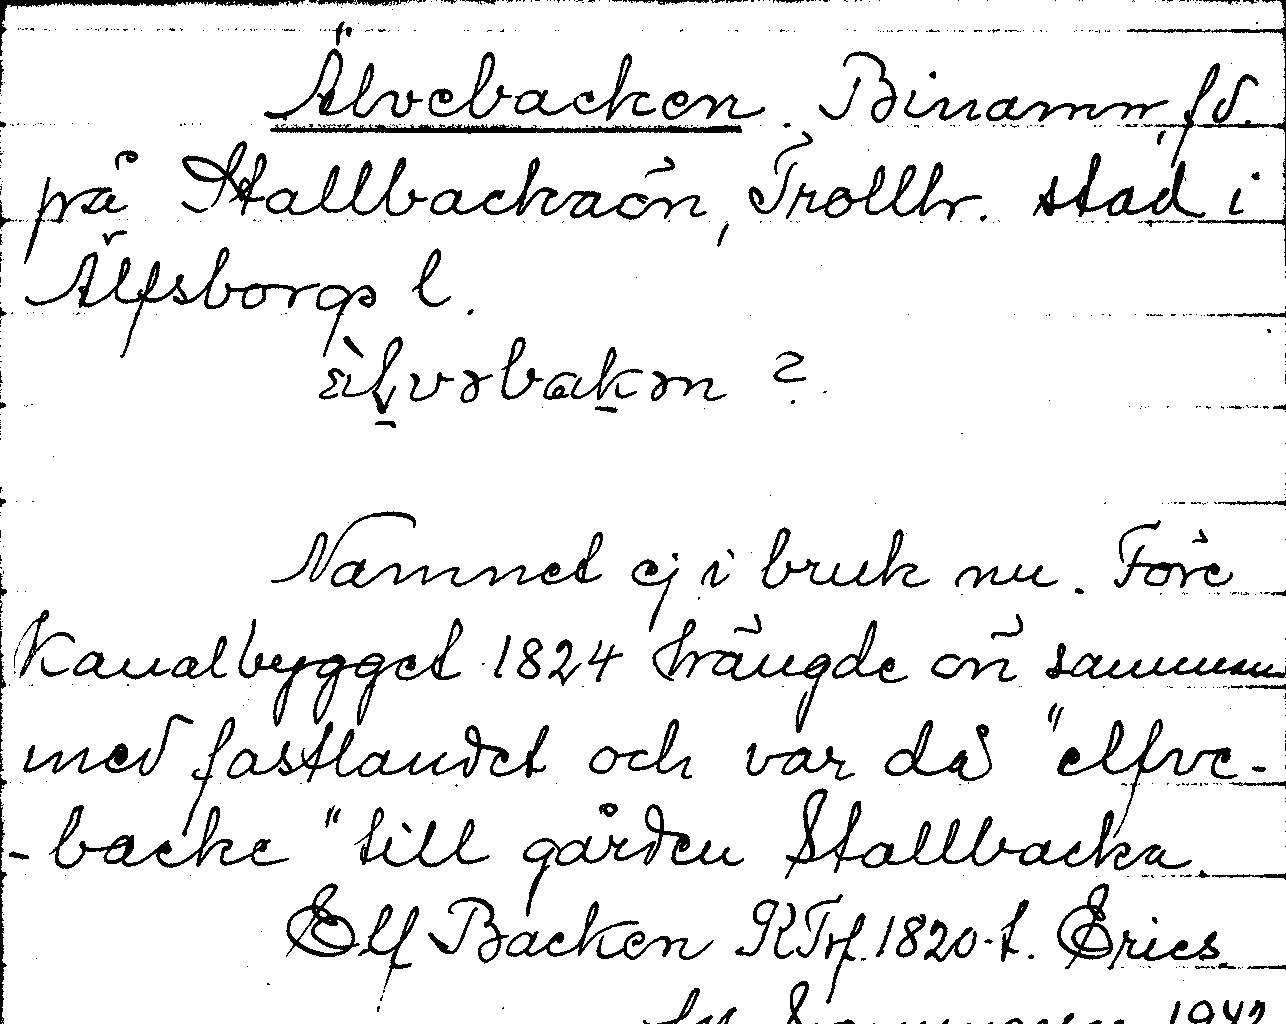 Älvebacken. Binamn, fd.
på Stallbackaön, Trollh. stad i
Älfsborgs l.
Namnet ej i bruk nu. Före
Kanalbygget 1824 hängde ön samman
med fastlandet och var då "elfve-
-backe" till gården Stallbacka.
Elf Backen KTrf. 1820-t. Erics.
1942